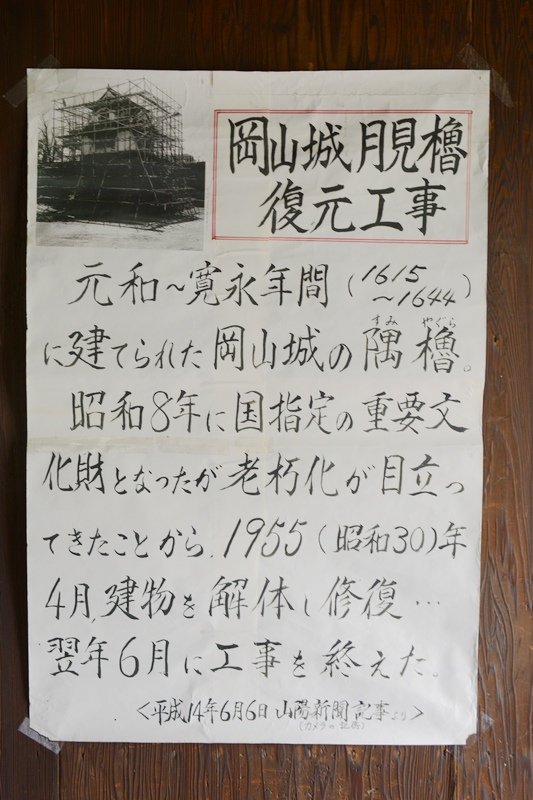 岡山城月見櫓
復元工事
元和~寛永年間(1615
~1644)
すみ やぐら
に建てられた岡山城の隅櫓。
昭和8年に国指定の重要文
化財となったが老朽化が目立っ
てきたことから、1955(昭和30)年
4月、建物を解体し修復…
翌年6月に工事を終えた。
<平成14年6月6日 山陽新聞記事より>
(カメラの記憶)